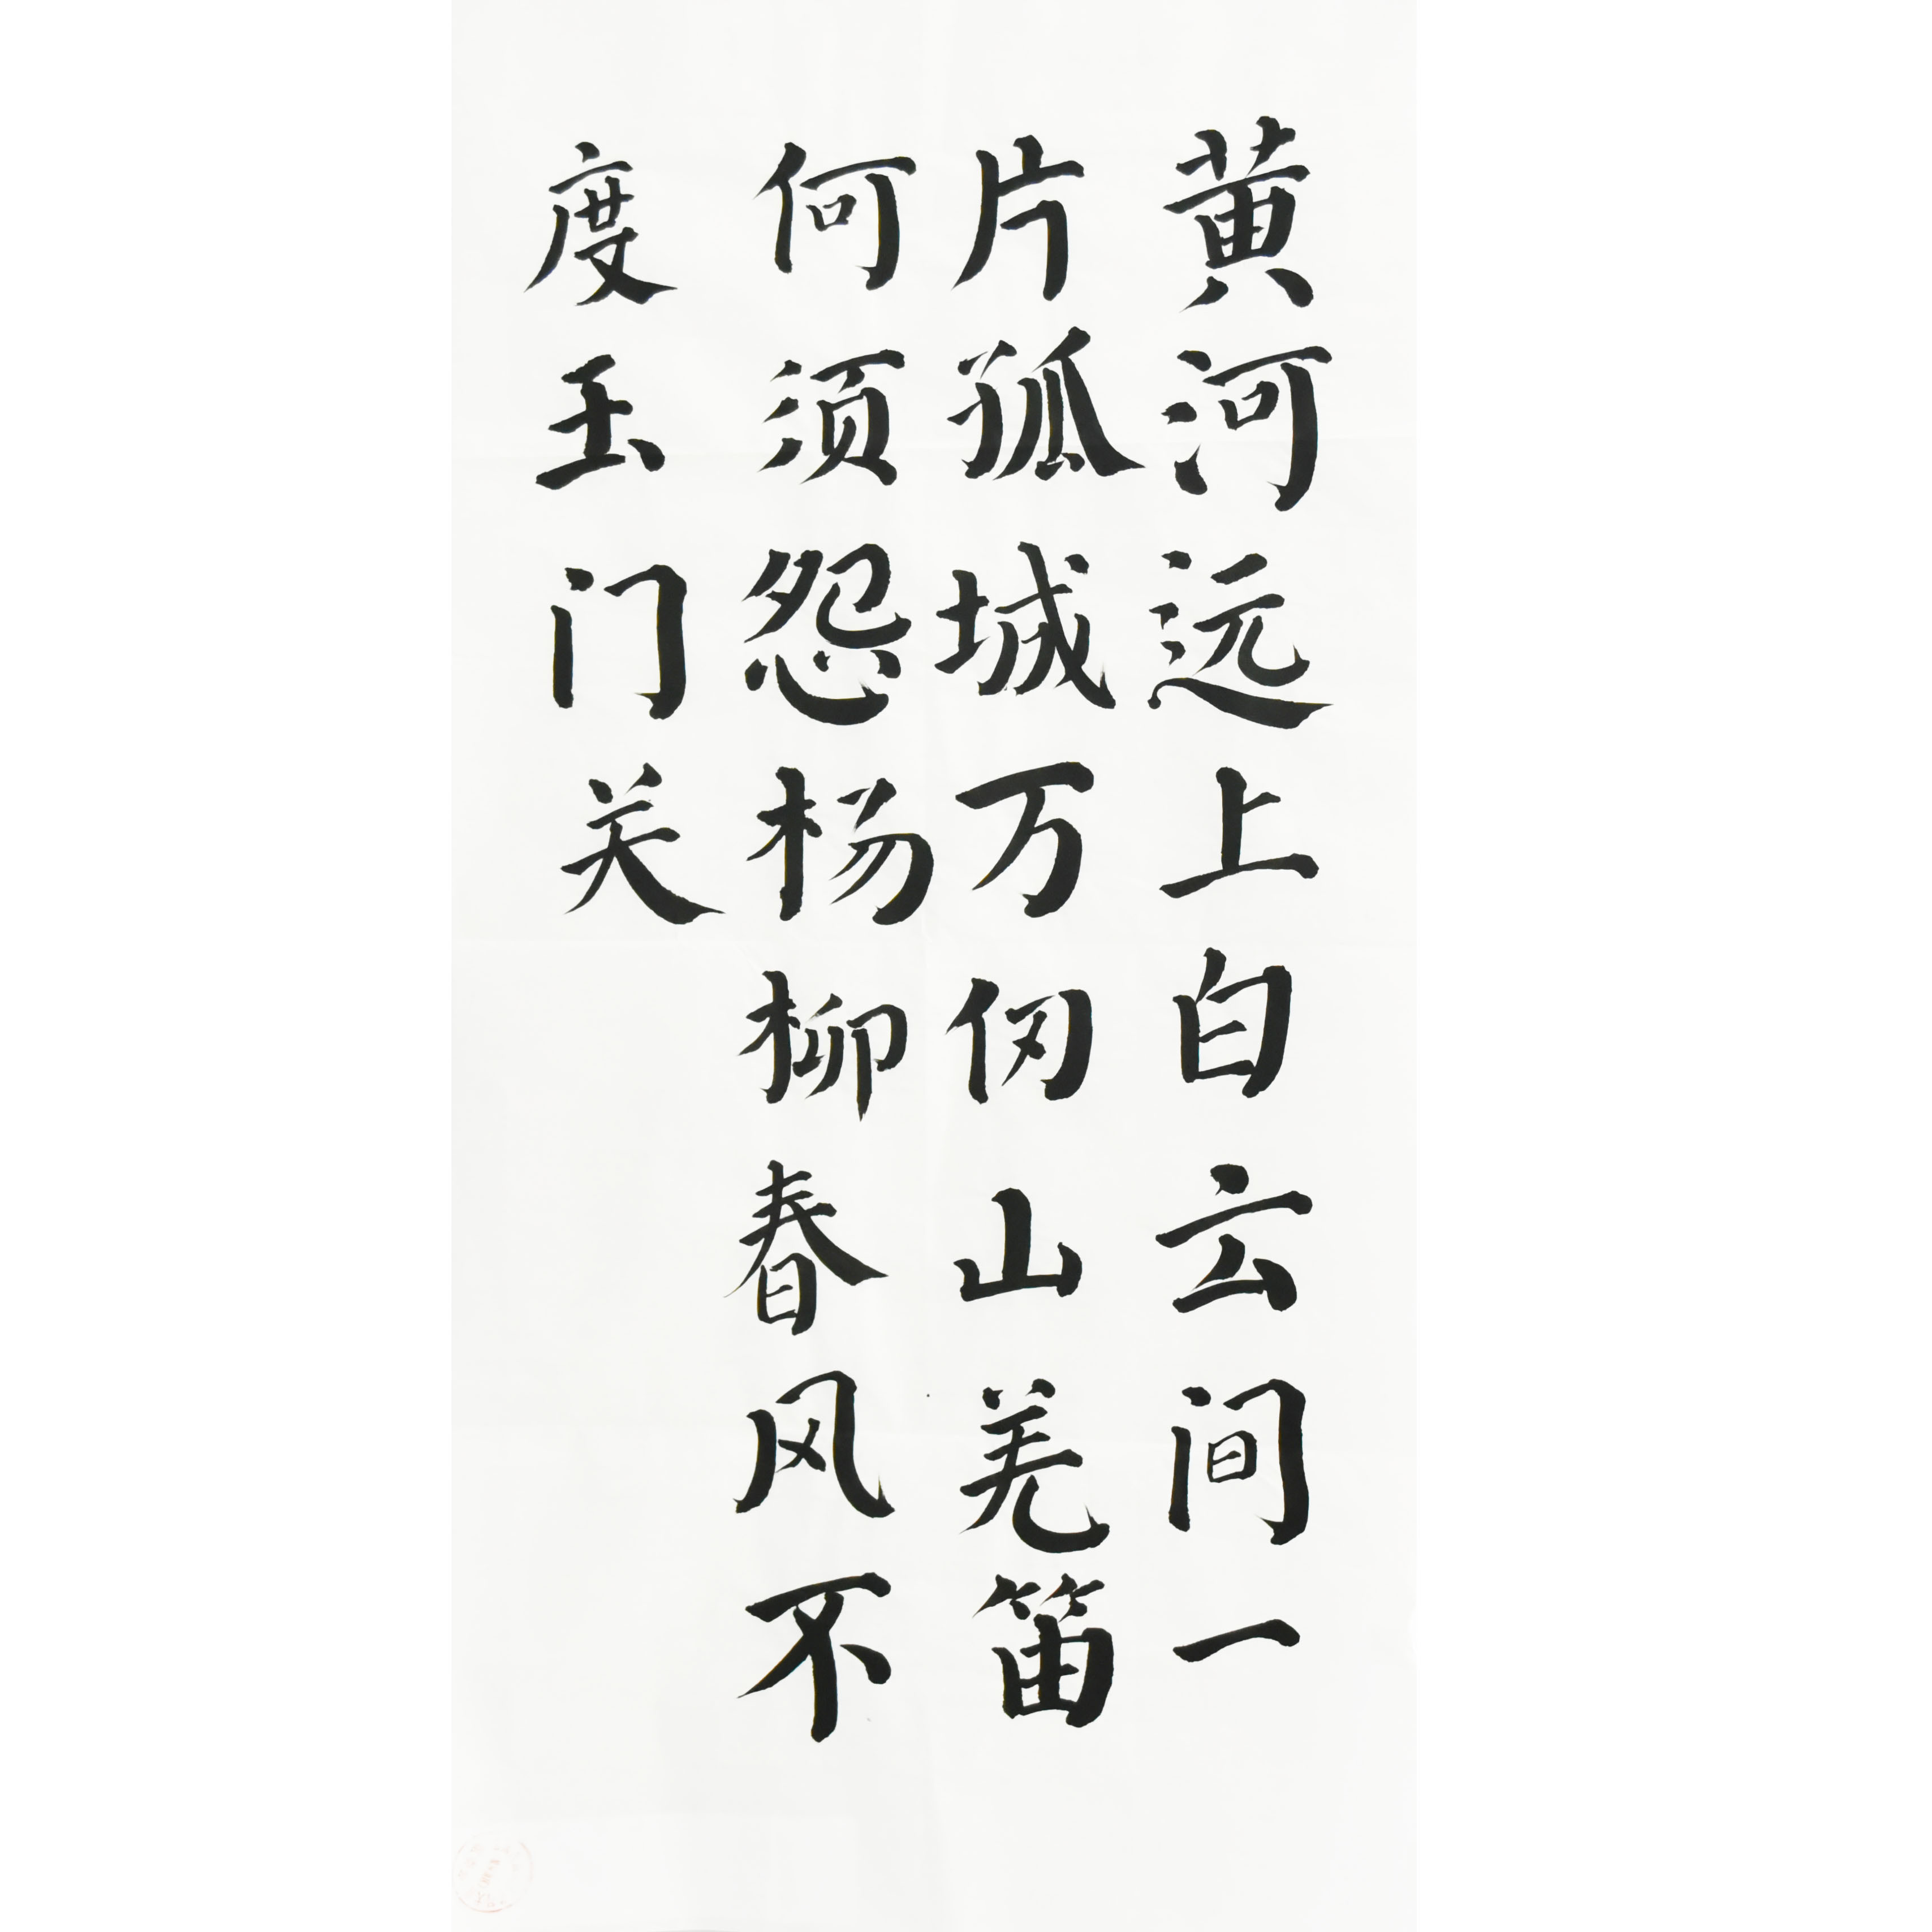 黄河远上白云间一
片狐城万仞山羌笛
何须怨杨柳春风不
度玉门关